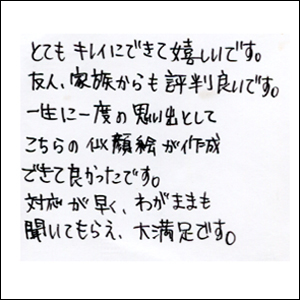 とてもキレイにできて嬉しいです。
友人、家族からも評判良いです。
一生に一度の思い出として
こちらの似顔絵が作成
できて良かったです。
対応が早く、わがままも
聞いてもらえ、大満足です。